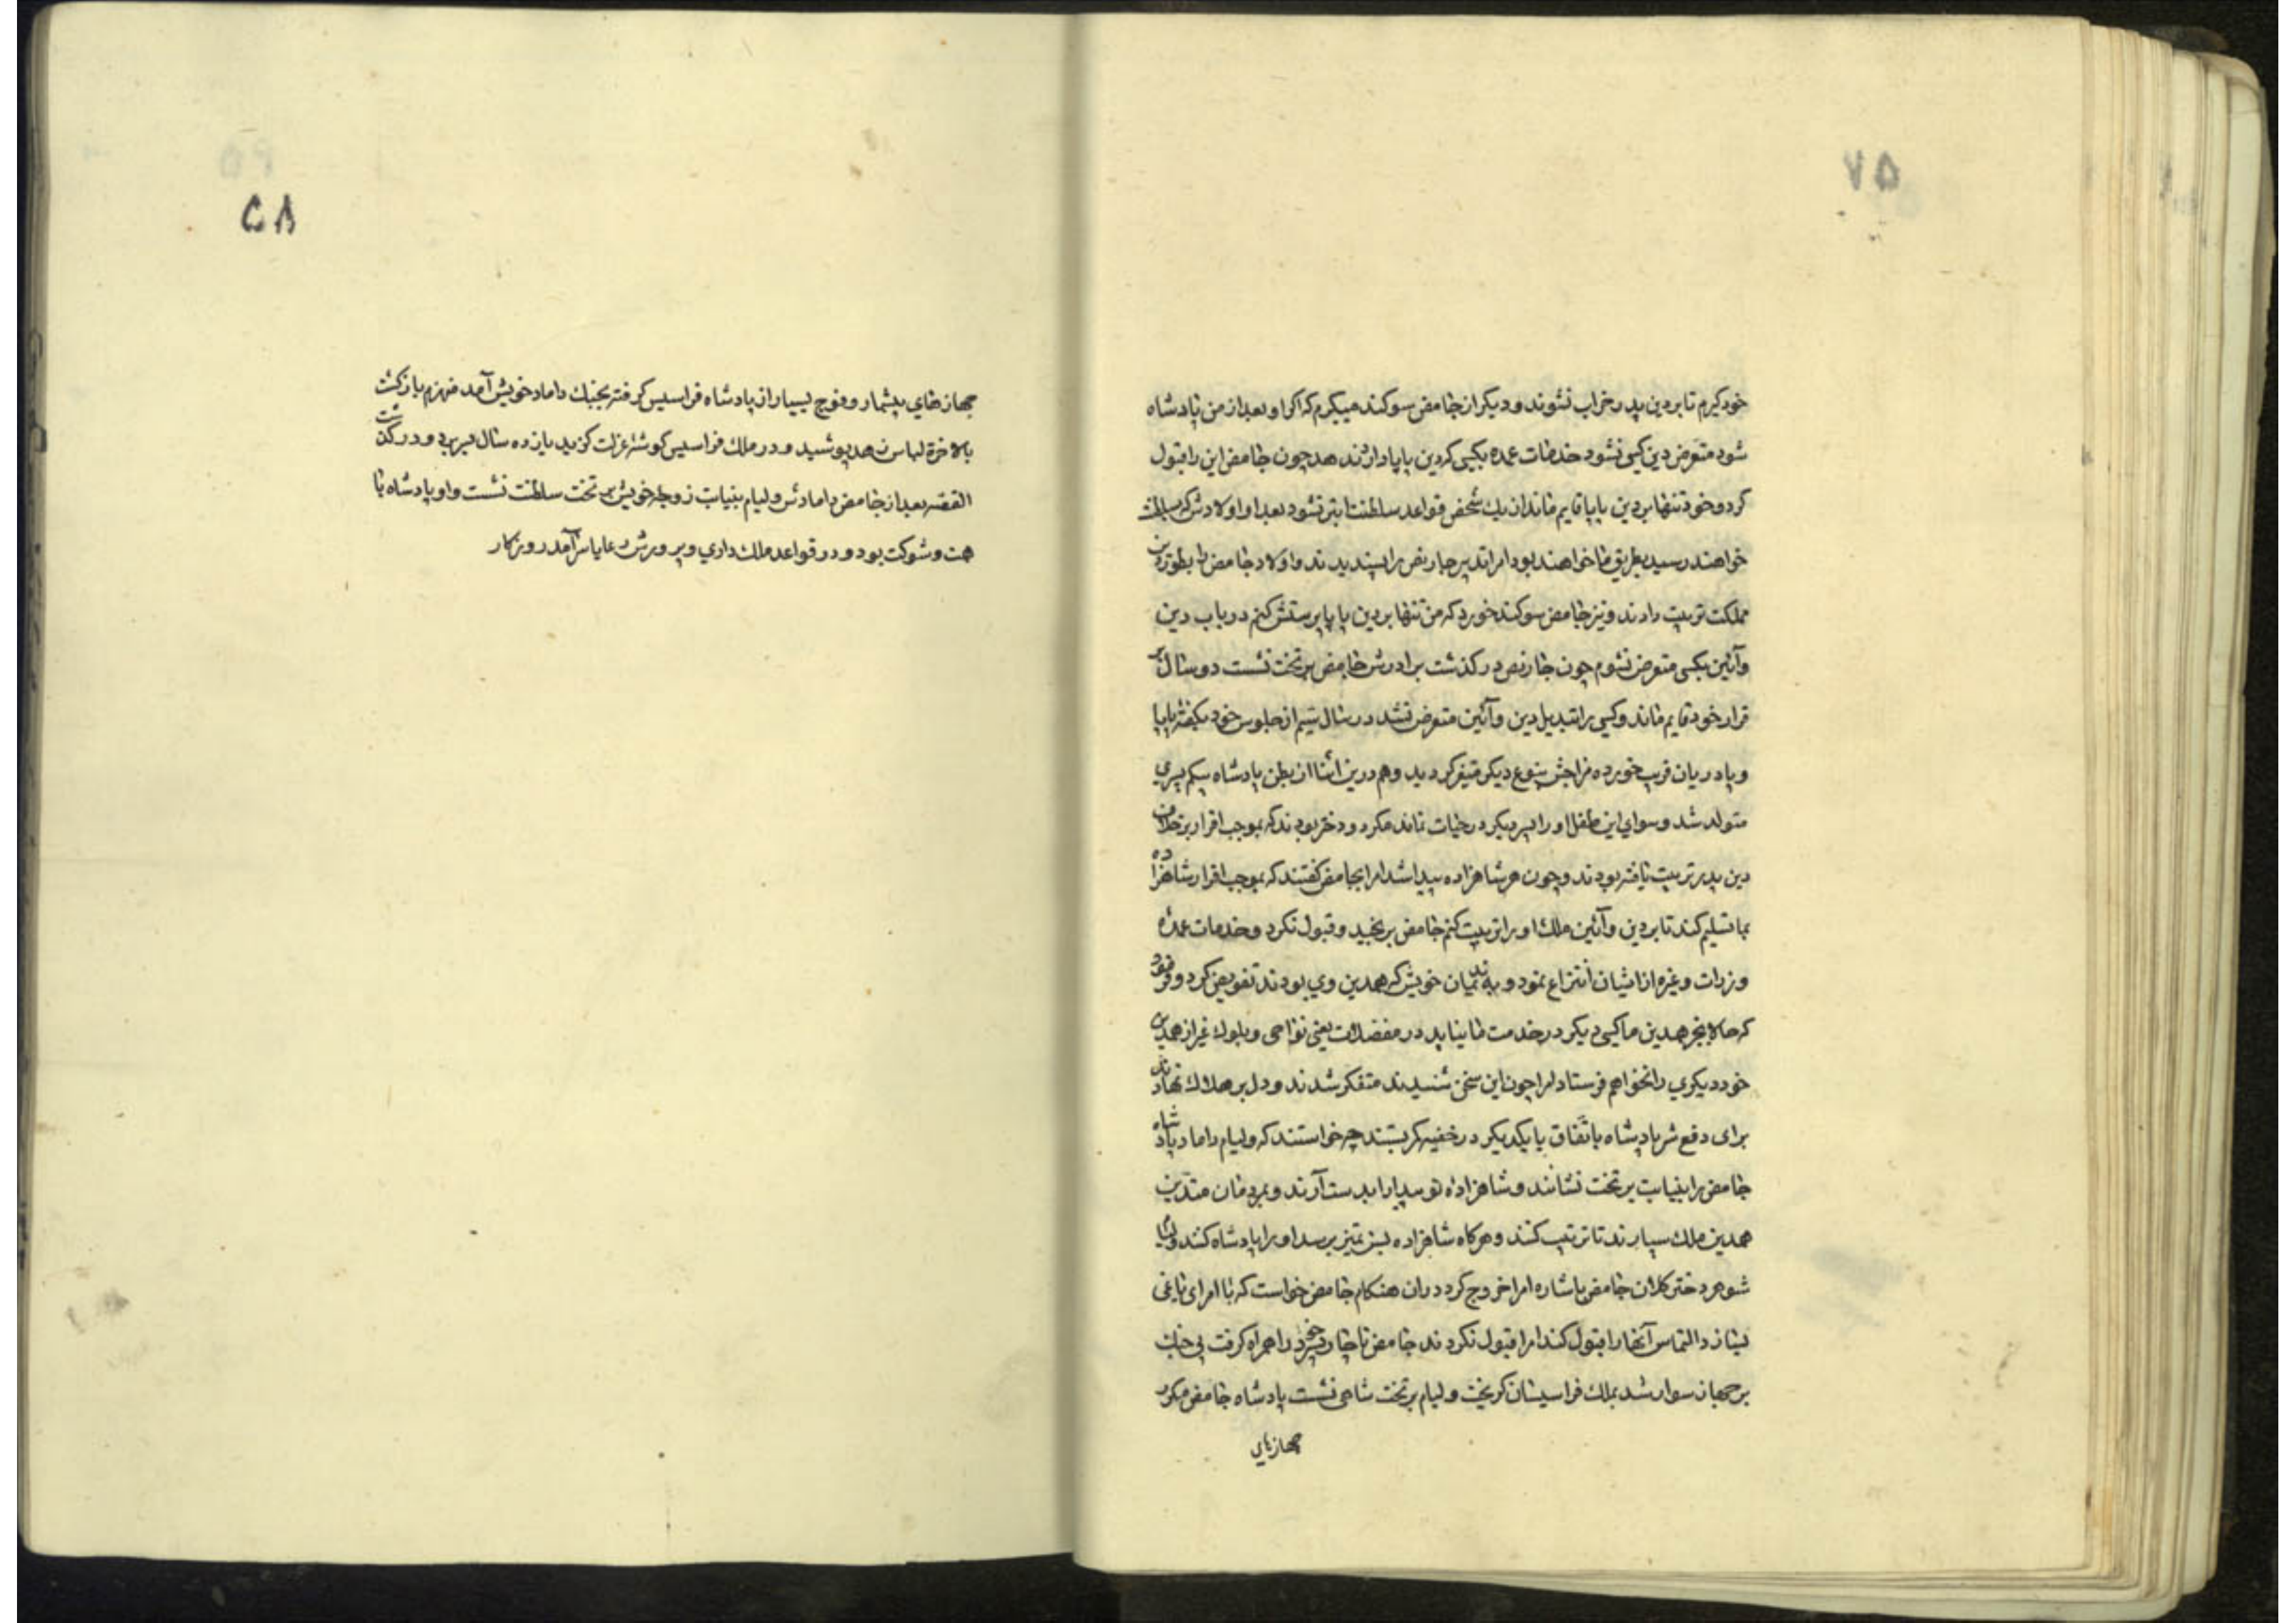 خود کیرم تا بر دین پدر خراب نشوند و دیکر از جامض سوکند میکیرم که اکر او بعد از من پادشاه
شود متعرض دین کسی نشود خدمات عمده بکسی که دین پاپا دارند ندهد چون جامض این را قبول
کرد و خود تنها بر دین پاپا قایم ماند از یک شخص قواعد سلطنت ابتر نشود بعد او اولادش که بسلطنت
خواهند رسید بطریق ما خواهند بود امرا تدبیر جارنص را پسندیدند و اولاد جامض را بطور دین
مملکت تربیت دادند و نیز جامض سوکند خورد که من تنها بر دین پاپا پرستش کنم در باب دین
و آئین بکسی متعرض نشوم چون جارنص در کذشت برادرش جامض بر تخت نشست دو سال بر
قرار خود قایم ماند و کسی را تبدیل دین و آئین متعرض نشد در سال سیم از جلوس خود بکفته پاپا
و پادریان فریب خورده مزاجش بنوع دیکر متغیر کردید و هم درین اثنا از بطن پادشاه بیکم پسری
متولد شد و سوای این طفل او را پسر دیکر در حیات نماند مکر دو دختر بودند که بموجب اقرار بر خلاف
دین پدر تربیت یافته بودند و چون هر شاهزاده پیدا شد امرا بجامض کفتند که بموجب اقرار شاهزاده
بما تسلیم کند تا بر دین و آئین ملک او را تربیت کنم جامض برنجید و قبول نکرد و خدمات عمده
وزرات و غیره از ایشان انتزاع نمود و به ندیمان خویش که همدین وی بودند تفویض کرد و فرمود
که حالا بجز همدین ما کسی دیکر در خدمت ما نیاید در مفضلات یعنی نواحی و بلوک غیر از همدین
خود دیکری را نخواهم فرستاد امرا چون این سخن شنیدند متفکر شدند و دل بر هلاک نهادند
برای دفع شر پادشاه باتفاق یا یکدیکر در خفیه کمر بستند چه خواستند که ولیام داماد پادشاه
جامض را بنیابت بر تخت نشانند و شاهزاده نو پیدا را بدست آرند و بمردمان متدین
همدین ملک سپارند تا تربیت کنند و هرکاه شاهزاده بسن تمیز برسد او را پادشاه کنند ولیام
شوهر دختر کلان جامض باشاره امرا خروج کرد دران هنکام جامض خواست که با امرای باغی
بسازد التماس آنها را قبول کند امرا قبول نکردند جامض ناچار پسر خود را همراه کرفت بی جنک
بر جهاز سوار شد بملک فراسیسان کریخت ولیام بر تخت شاهی نشست پادشاه جامض مکرر
جهازهای
۵۸
جهازهای بیشمار و فوج بسیار از پادشاه فراسیس کرفته بجنک داماد خویش آمد منهزم باز کشت
بالاخرة لباس زهد پوشید و در ملک فراسیس کوشهٔ عزلت کزید یازده سال بسر برد و در کذشت
القصه بعد از جامض دامادش ولیام بنیابت زوجه خویش بر تخت سلطنت نشست و او پادشاه با
همت و شوکت بود و در قواعد ملک داری و پرورش رعایا سرآمد روزکار